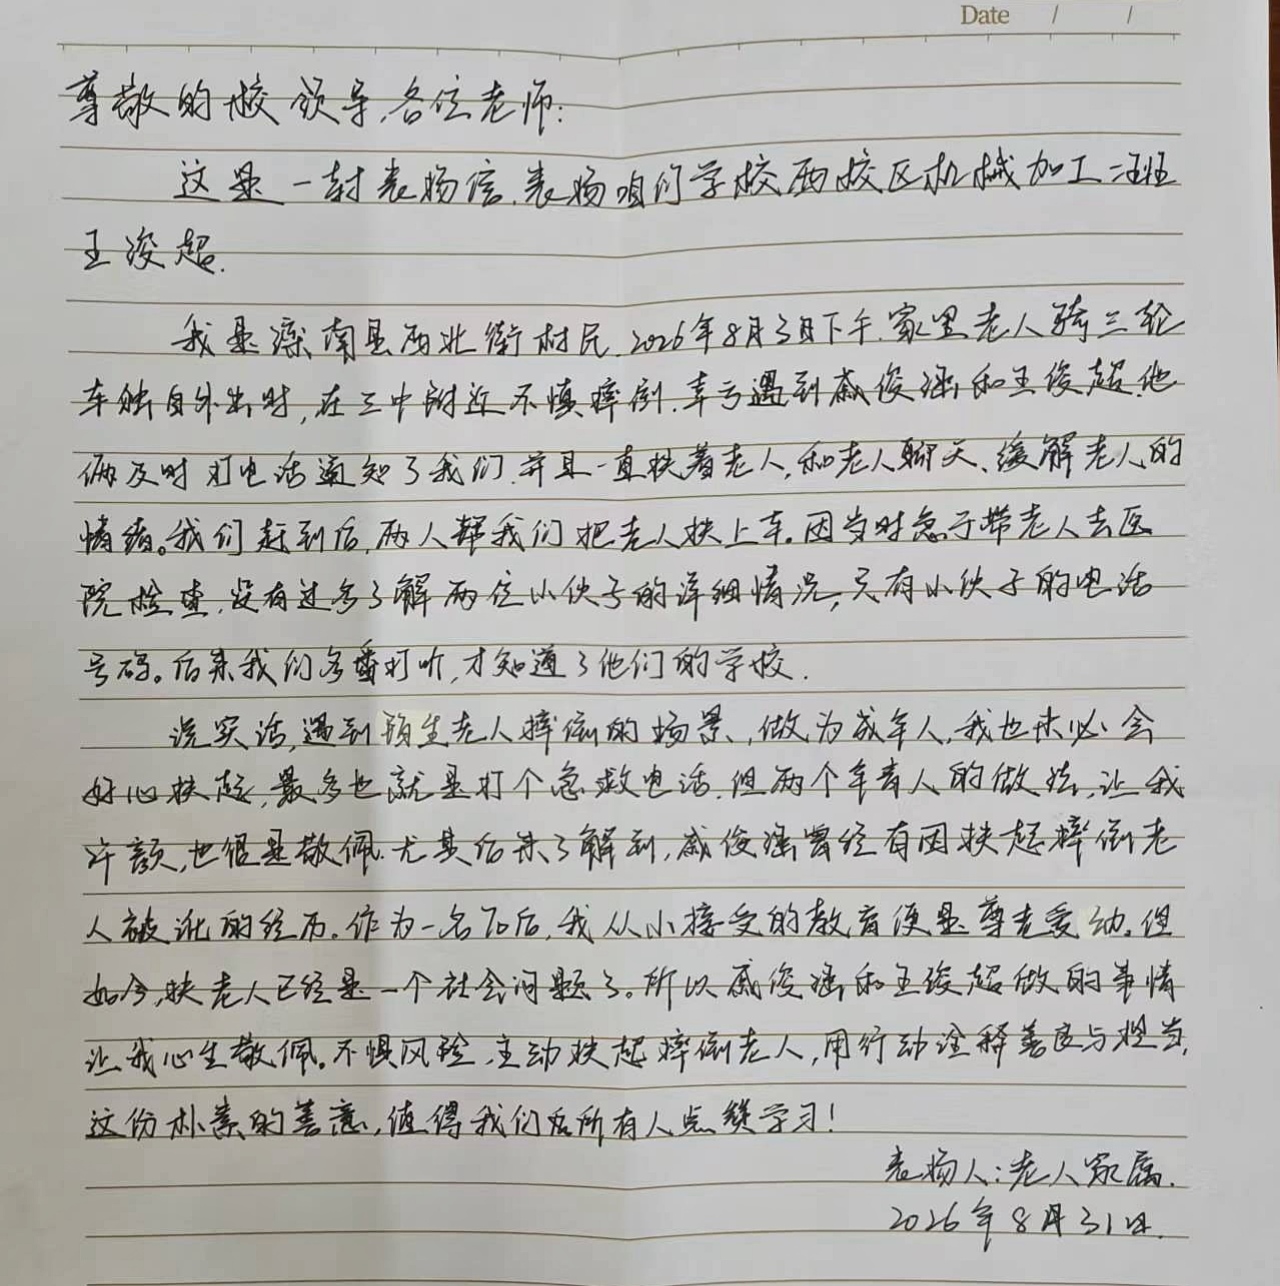 Date / /
尊敬的校领导,各位老师:
这是一封表扬信,表扬咱们学校西校区机械加工二班
王俊超.
我是滦南县西北街村民,2026年8月3日下午,家里老人骑三轮
车独自外出时,在三中附近不慎摔倒.幸亏遇到戚俊涵和王俊超,他
俩及时打电话通知了我们,并且一直扶着老人,和老人聊天、缓解老人的
情绪。我们赶到后,两人帮我们把老人扶上车。因当时急于带老人去医
院检查,没有过多了解两位小伙子的详细情况,只有小伙子的电话
号码。后来我们多番打听,才知道了他们的学校.
说实话,遇到陌生老人摔倒的场景,做为成年人,我也未必会
好心扶起,最多也就是打个急救电话.但两个年青人的做法,让我
汗颜,也很是敬佩.尤其后来了解到,戚俊涵曾经有因扶起摔倒老
人被讹的经历。作为一名70后,我从小接受的教育便是尊老爱幼。但
如今,扶老人已经是一个社会问题了。所以戚俊涵和王俊超做的事情
让我心生敬佩。不惧风险,主动扶起摔倒老人,用行动诠释善良与担当,
这份朴素的善意,值得我们后所有人点赞学习!
表扬人:老人家属.
2026年8月31日.